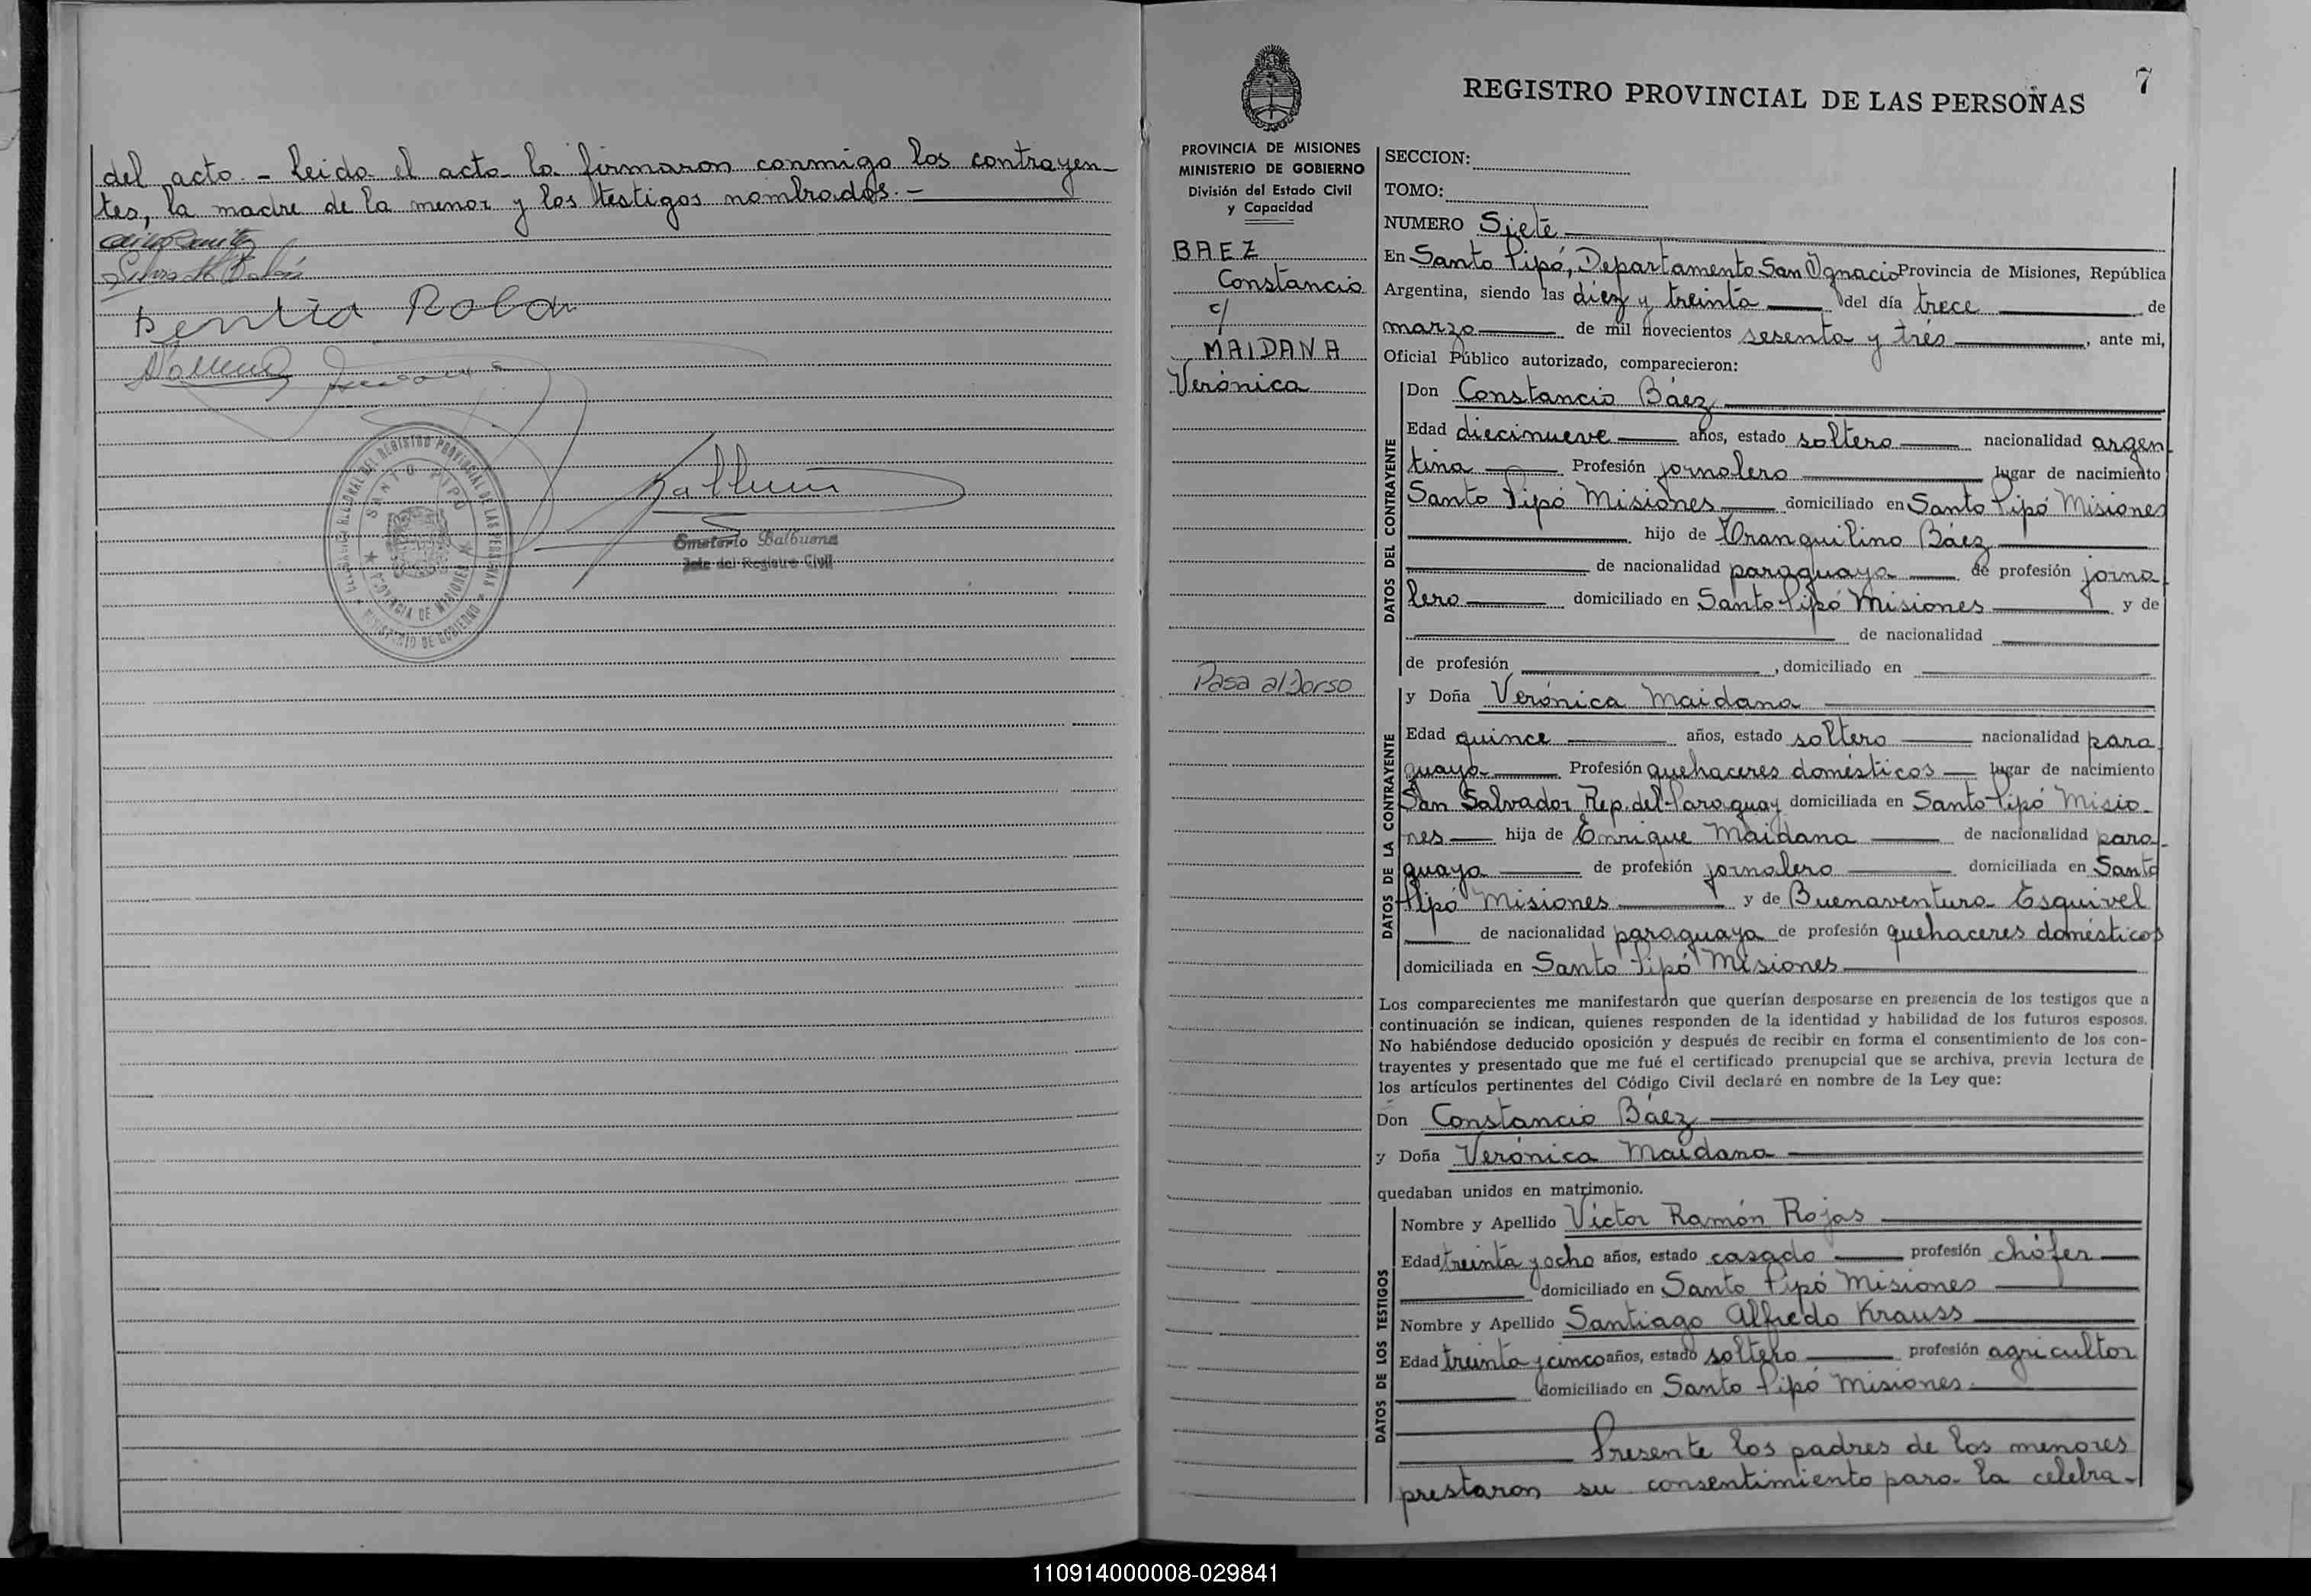 del acto.- Leida el acta la firmaron conmigo los contrayen-
tes, la madre de la menor y los testigos nombrados.-
Emeterio Balbuena
Jefe del Registro Civil
DEL REGISTRO PROVINCIAL DE LAS PERSONAS
SANTO PIPO
PROVINCIA DE MISIONES
MINISTERIO DE GOBIERNO
7
REGISTRO PROVINCIAL DE LAS PERSONAS
PROVINCIA DE MISIONES
MINISTERIO DE GOBIERNO
División del Estado Civil
y Capacidad
BAEZ
Constancio
c/
MAIDANA
Verónica
Pasa al Dorso
SECCION:
TOMO:
NUMERO Siete
En Santo Pipó, Departamento San Ignacio Provincia de Misiones, República
Argentina, siendo las diez y treinta del día trece de
marzo de mil novecientos sesenta y trés, ante mi,
Oficial Público autorizado, comparecieron:
DATOS DEL CONTRAYENTE
Don Constancio Báez
Edad diecinueve años, estado soltero nacionalidad argen
tina Profesión jornalero lugar de nacimiento
Santo Pipó Misiones domiciliado en Santo Pipó Misiones
hijo de Tranquilino Báez
de nacionalidad paraguaya de profesión jorna
lero domiciliado en Santo Pipó Misiones y de
de nacionalidad
de profesión , domiciliado en
DATOS DE LA CONTRAYENTE
y Doña Verónica Maidana
Edad quince años, estado soltera nacionalidad para
guaya Profesión quehaceres domésticos lugar de nacimiento
San Salvador Rep. del Paraguay domiciliada en Santo Pipó Misio
nes hija de Enrique Maidana de nacionalidad para-
guaya de profesión jornalero domiciliada en Santo
Pipó Misiones y de Buenaventura Esquivel
de nacionalidad paraguaya de profesión quehaceres domésticos
domiciliada en Santo Pipó Misiones
Los comparecientes me manifestaron que querían desposarse en presencia de los testigos que a
continuación se indican, quienes responden de la identidad y habilidad de los futuros esposos.
No habiéndose deducido oposición y después de recibir en forma el consentimiento de los con-
trayentes y presentado que me fué el certificado prenupcial que se archiva, previa lectura de
los artículos pertinentes del Código Civil declaré en nombre de la Ley que:
Don Constancio Báez
y Doña Verónica Maidana
quedaban unidos en matrimonio.
DATOS DE LOS TESTIGOS
Nombre y Apellido Víctor Ramón Rojas
Edad treinta y ocho años, estado casado profesión chófer
domiciliado en Santo Pipó Misiones
Nombre y Apellido Santiago Alfredo Krauss
Edad treinta y cinco años, estado soltero profesión agricultor
domiciliado en Santo Pipó Misiones
Presente los padres de los menores
prestaron su consentimiento para la celebra-
110914000008-029841